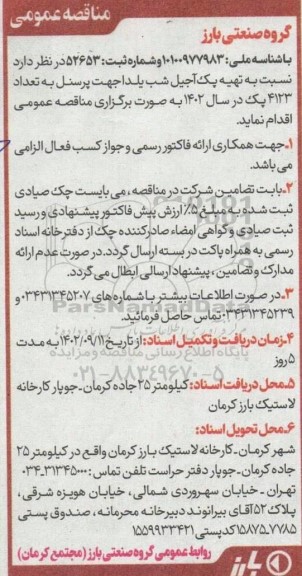 مناقصه عمومی
گروه صنعتی بارز
با شناسه ملی: ۱۰۱۰۰۹۷۷۹۸۳ و شماره ثبت: ۵۲۶۵۳ در نظر دارد
نسبت به تهیه پک آجیل شب یلدا جهت پرسنل به تعداد
۴۱۲۳ پک در سال ۱۴۰۲ به صورت برگزاری مناقصه عمومی
اقدام نماید.
۱. جهت همکاری ارائه فاکتور رسمی و جواز کسب فعال الزامی
می باشد.
۲. بابت تضامین شرکت در مناقصه، می بایست چک صیادی
ثبت شده به مبلغ ۵٪ ارزش پیش فاکتور پیشنهادی و رسید
ثبت صیادی و گواهی امضاء صادرکننده چک از دفترخانه اسناد
رسمی به همراه پاکت در بسته ارسال گردد. در صورت عدم ارائه
مدارک و تضامین، پیشنهاد ارسالی ابطال می گردد.
۳. در صورت اطلاعات بیشتر با شماره های ۰۳۴۳۱۳۴۵۲۰۷ و
۰۳۴۳۱۳۴۵۲۳۹ تماس حاصل فرمائید.
۴. زمان دریافت و تکمیل اسناد: از تاریخ ۱۴۰۲/۰۹/۱۱ به مدت
۵ روز
۵. محل دریافت اسناد: کیلومتر ۲۵ جاده کرمان - جوپار کارخانه
لاستیک بارز کرمان
۶. محل تحویل اسناد:
شهر کرمان - کارخانه لاستیک بارز کرمان واقع در کیلومتر ۲۵
جاده کرمان - جوپار دفتر حراست تلفن تماس: ۳۱۳۴۵۰۰۰-۰۳۴
تهران - خیابان سهروردی شمالی، خیابان هویزه شرقی،
پلاک ۵۲ آقای بیرانوند دبیرخانه محرمانه، صندوق پستی
۱۵۸۷۵-۷۷۸۵ کد پستی ۱۵۵۹۹۳۳۴۲۱
روابط عمومی گروه صنعتی بارز (مجتمع کرمان)
بارز
ParsNamadData
پایگاه اطلاع رسانی مناقصه و مزایده
۰۲۱-۸۸۳۴۹۶۷۰-۵